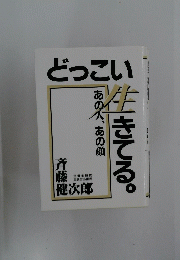 どっこい
生きてる。
あの人、あの顔
斉藤健次郎